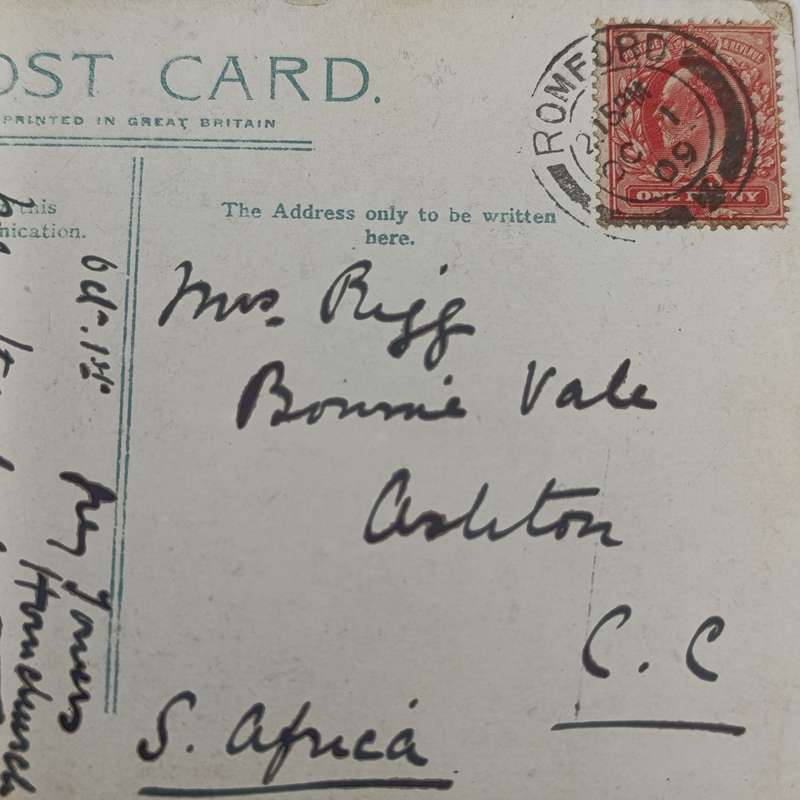 OST CARD.
PRINTED IN GREAT BRITAIN
this
nication.
The Address only to be written
here.
ROMFORD
2.15PM
OC 1
09
ONE PENNY
Mrs. Rigg
Bonnie Vale
Ashton
C. C
S. Africa
Oct. 1st
Hornchurch